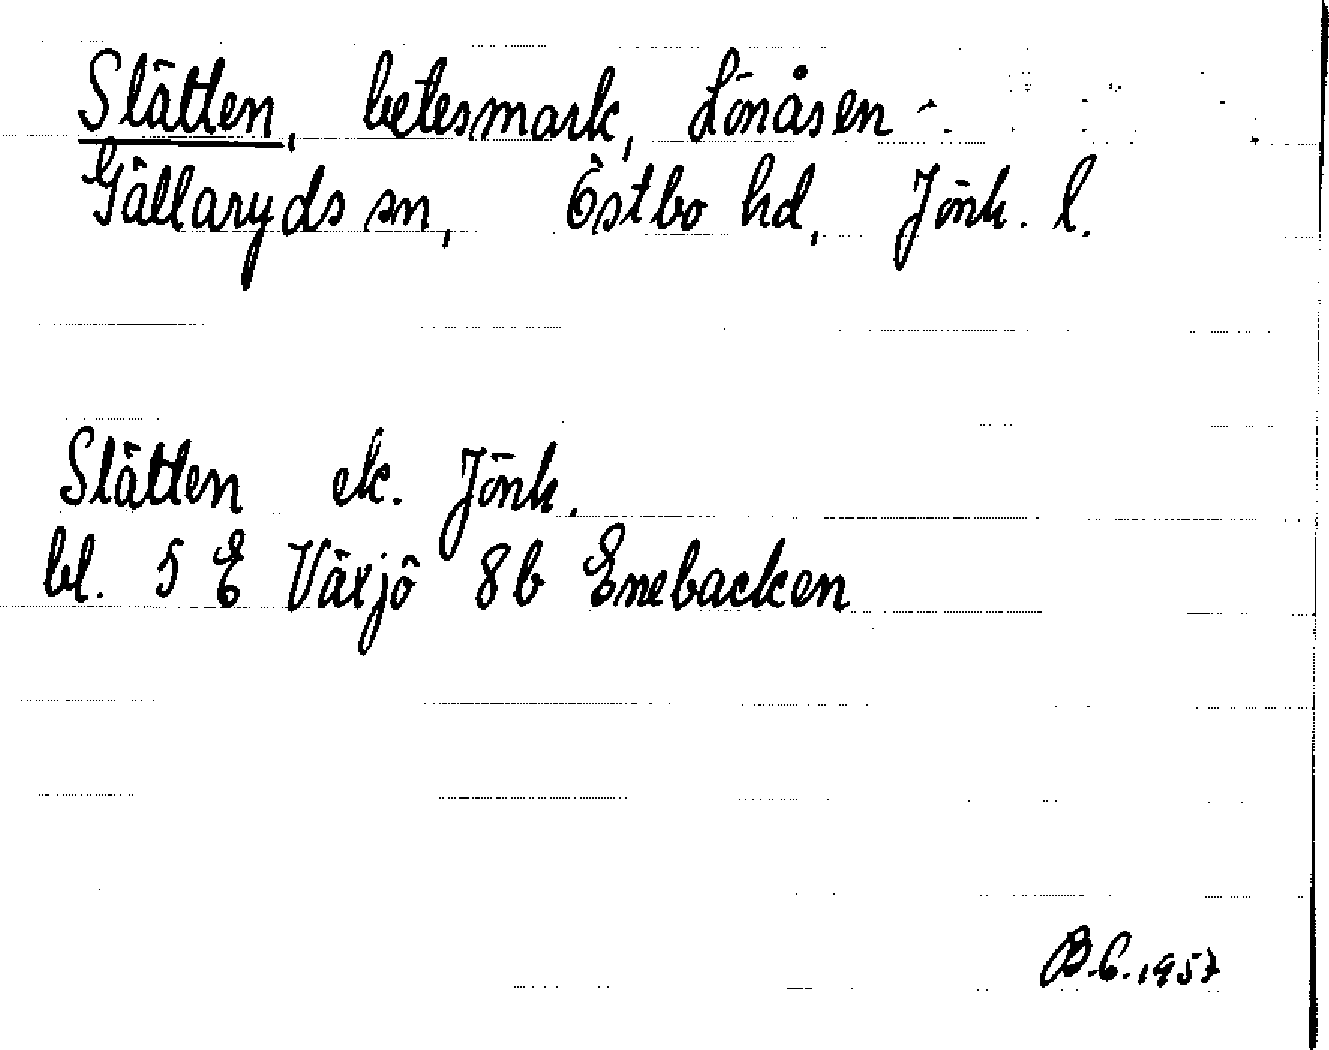 Slätten, betesmark, Lönåsen
Gällaryds sn, Östbo hd, Jönk. l.
Slätten ek. Jönk.
bl. 5 E Växjö 8b Enebacken
B.E. 1957